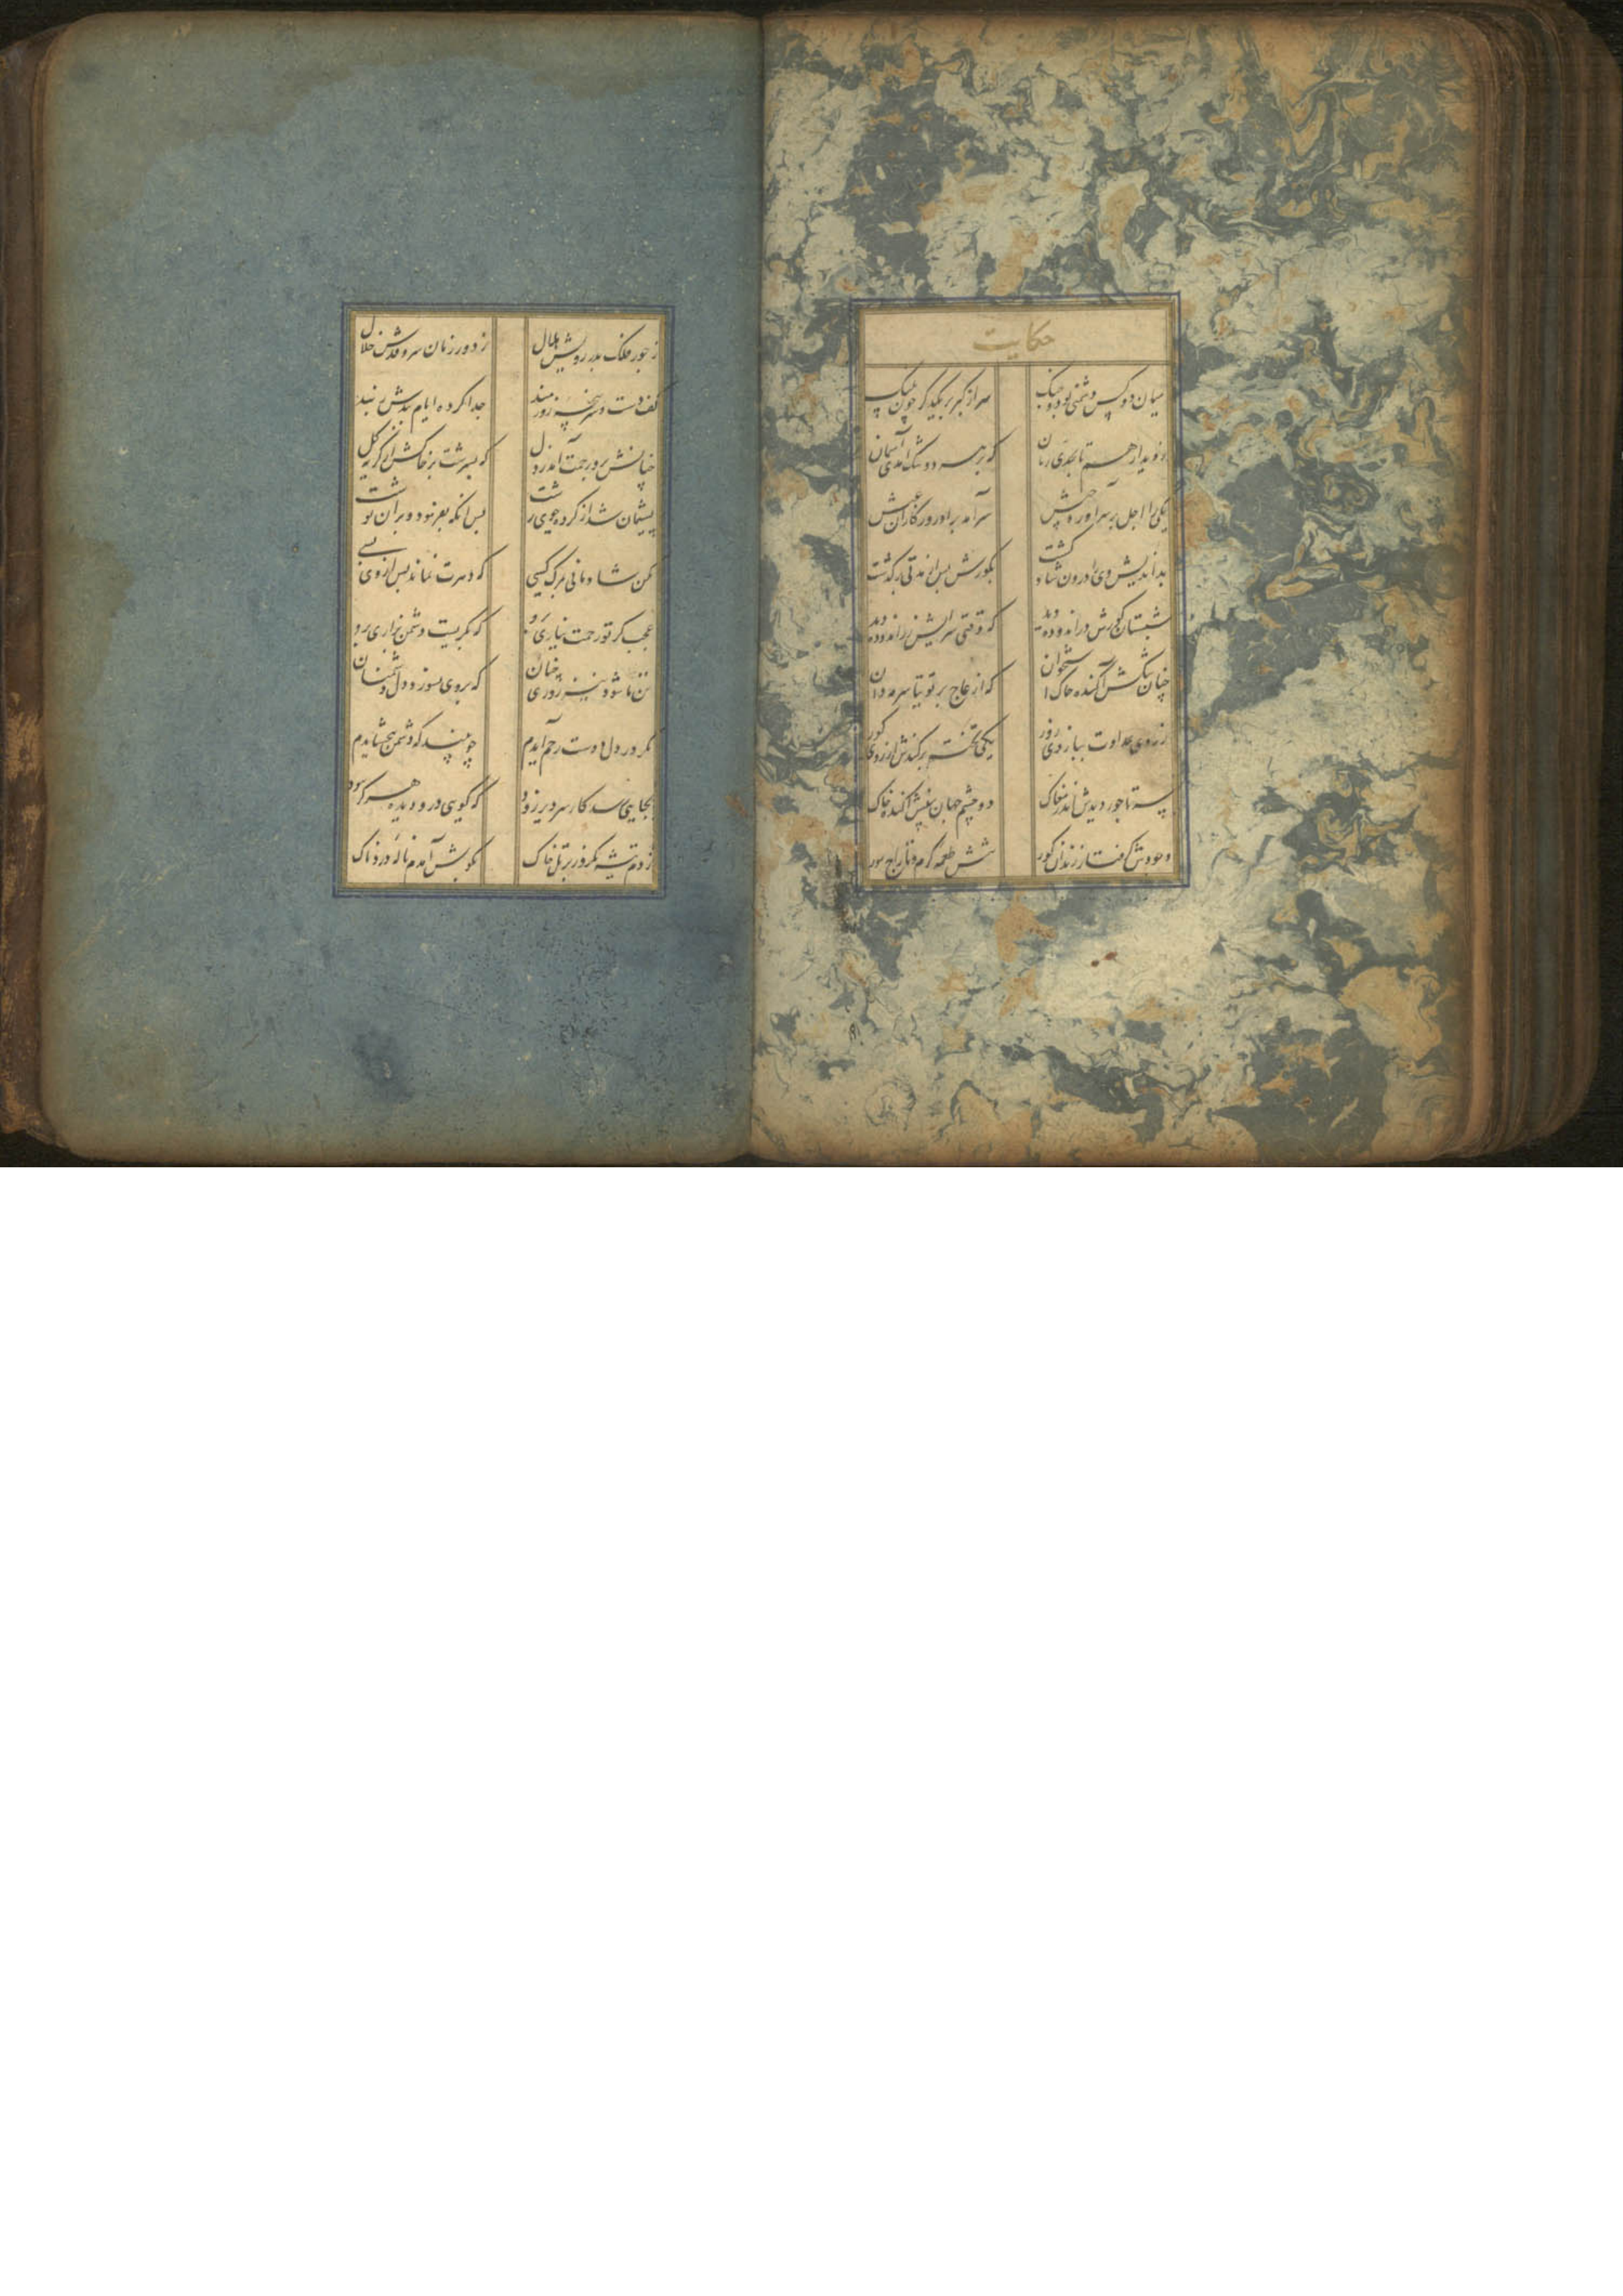 حکایت
میان دو کس دشمنی بود و جنگ سر از کبر بر یکدگر چون پلنگ
ز دیدار هم تا بحدی رمان که بر هر دو تنگ آمدی آسمان
یکی را اجل بر سر آورد جیش سر آمد برو روزگاران عیش
بداندیش وی را درون شاد گشت بگورش پس از مدتی برگذشت
شبستان گورش در اندوده دید که وقتی سرایش زر اندوده دید
ز روی عداوت ببازوی زور یکی تخته برکندش از روی گور
سر تاجور دیدش اندر مغاک دو چشم جهان بینش آکنده خاک
وجودش گرفتار زندان گور تنش طعمه کرم و تاراج مور
چنان تنگش آکنده خاک استخوان که از عاج پر توتیا سرمه دان
ز جور فلک بدر رویش هلال ز دور زمان سرو قدش خلال
کف دست و سرپنجه زورمند جدا کرده ایام بندش ز بند
چنانش برو رحمت آمد ز دل که بسرشت بر خاکش از گریه گل
پشیمان شد از کرده و خوی زشت بس آنکه بفرمود و بر آن نوشت
مکن شادمانی بمرگ کسی که دهرت نماند پس از وی بسی
عجب گر تو رحمت نیاری برو که بگریست دشمن بزاری برو
تن ما شود نیز روزی چنان که بر وی بسوزد دل دشمنان
مگر در دل دوست رحم آیدم چو بیند که دشمن ببخشایدم
بجایی رسد کار سر دیر و زود که گویی درو دیده هرگز نبود
زدم تیشه یکروز بر تل خاک بگوش آمدم ناله دردناک